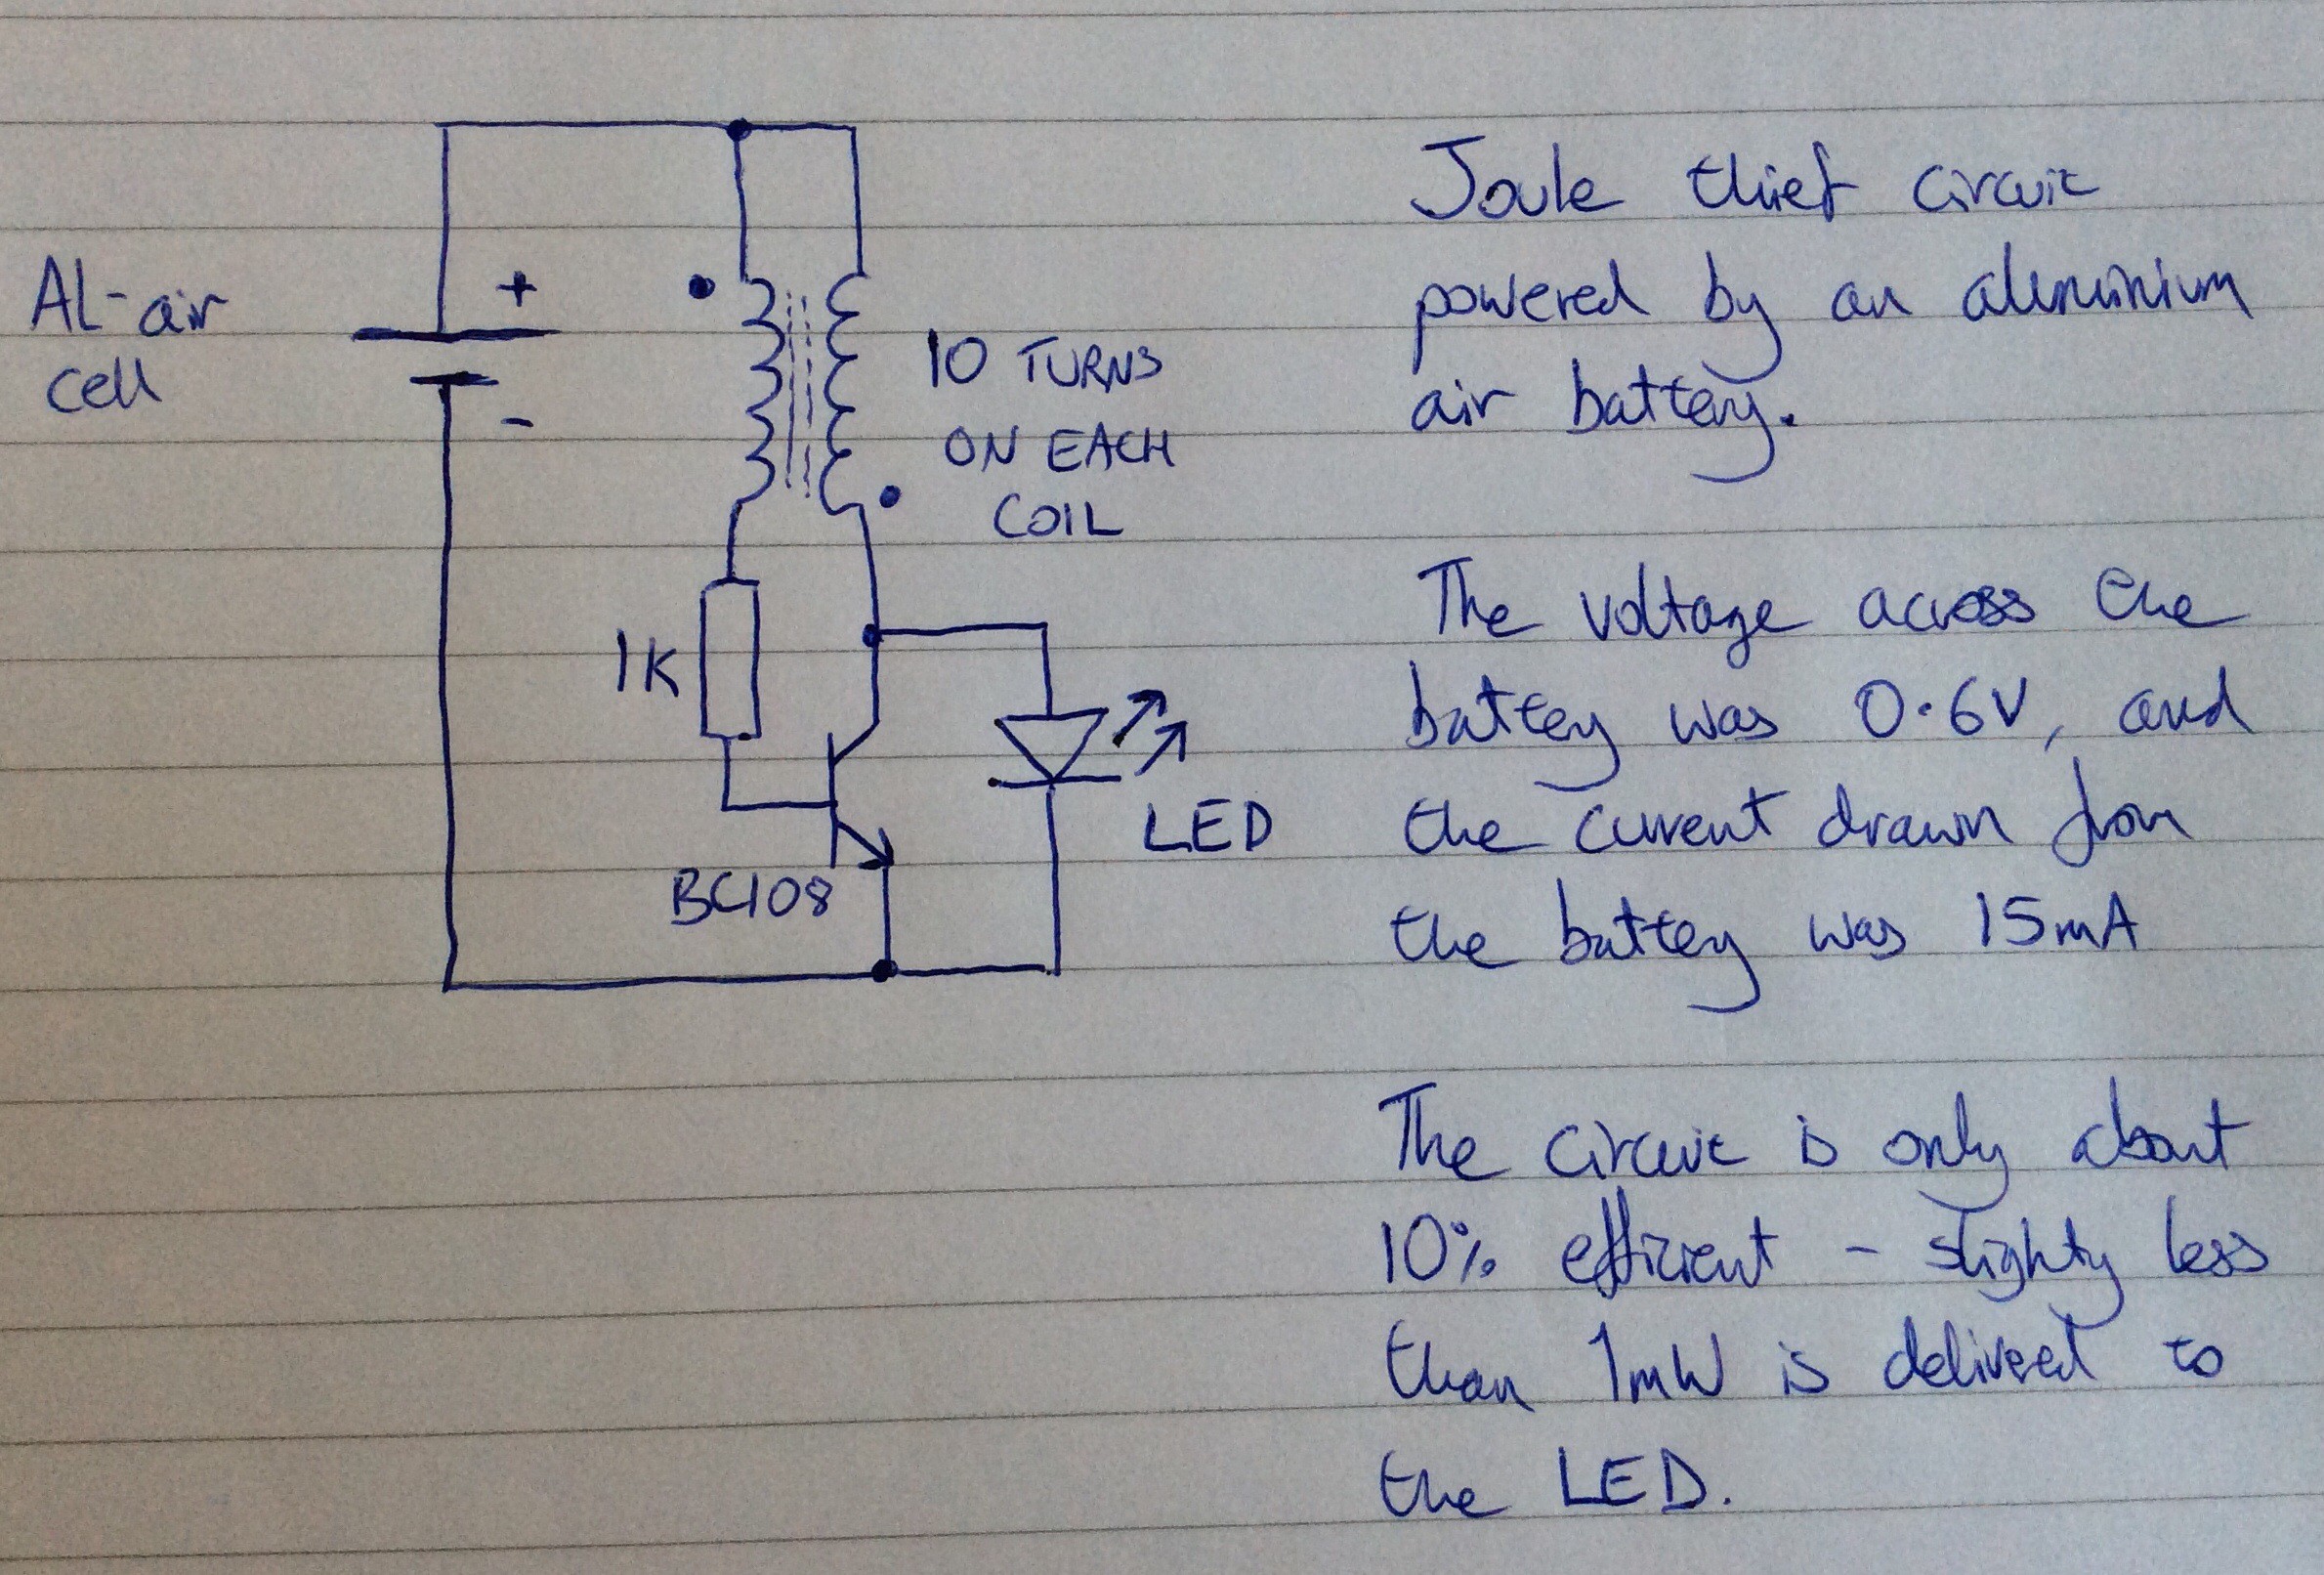 Al-air
cell
+
-
10 TURNS
ON EACH
COIL
1K
BC108
LED
Joule thief circuit
powered by an aluminium
air battery.
The voltage across the
battery was 0.6V, and
the current drawn from
the battery was 15mA
The circuit is only about
10% efficient - slighty less
than 1mW is delivered to
the LED.